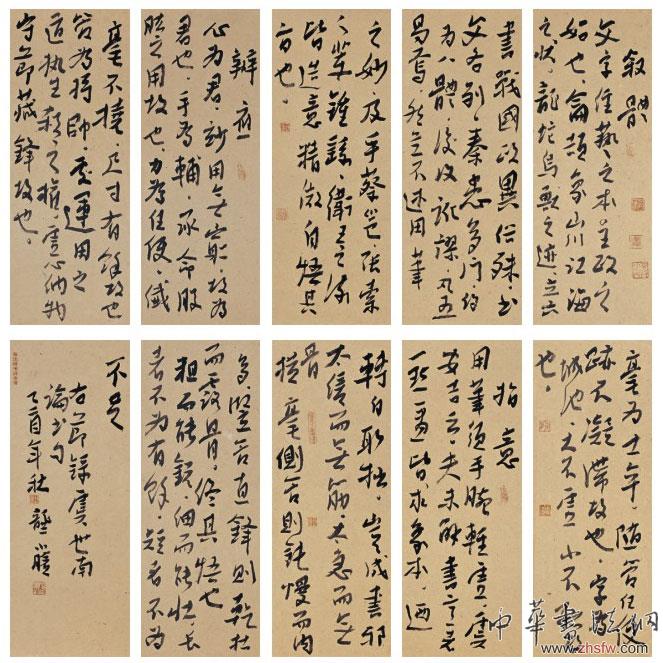 叙體
文字經藝之本王政之
始也倉頡象山川江海
之狀龍蛇鳥獸之迹立六
書戰國政異俗殊書
文各別秦患多門約
為八體後復訛謬凡五
易焉然並不述用筆
之妙及乎蔡邕張索
之輩鍾繇衛王之流
皆造意精微自悟其
旨也
辨應
心為君妙用無窮故為
君也手為輔承命股
肱之用故也力為任使纖
毫不撓尺寸有餘故也
管為將帥處運用之
道執生殺之權虛心納物
守節藏鋒故也
毫為士卒隨管任使
跡不凝滯故也字為
城池大不虛小不孤
也
指意
用筆須手腕輕虛虞
安吉云夫未解書意者
一點一畫皆求象本迺
轉自取拙豈成書邪
太緩而無筋太急而無
骨橫毫側管則鈍慢而肉
多豎管直鋒則乾枯
而露骨終其悟也
粗而能銳細而能壯長
者不為有餘短者不為
不足
右節錄虞世南
論書句
乙酉年秋龔
中華書法網
www.zhsfw.com